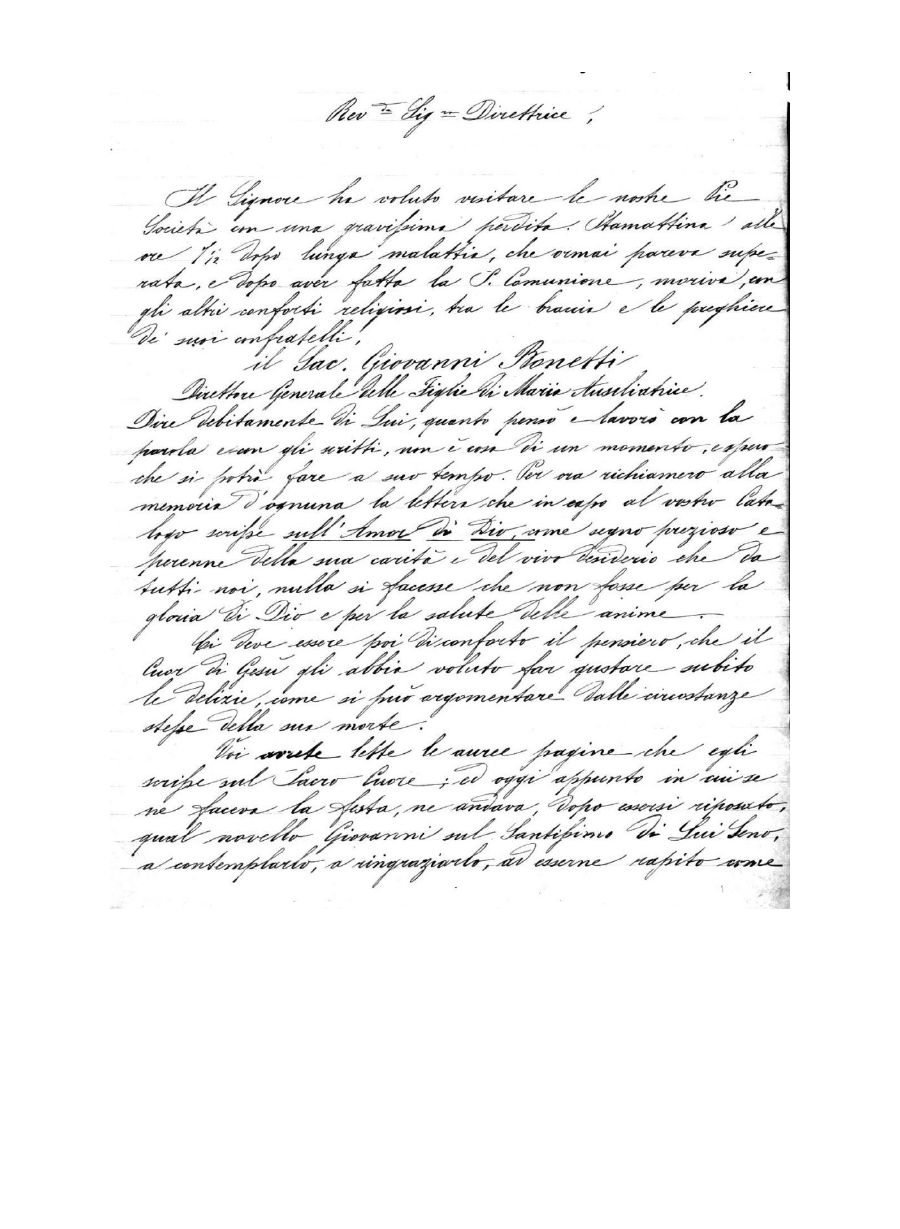 Rev.da Sig.ra Direttrice,
Il Signore ha voluto visitare le nostre Pie
Società con una gravissima perdita. Stamattina alle
ore 7 1/2 dopo lunga malattia, che ormai pareva supe-
rata, e dopo aver fatta la S. Comunione, moriva, con
gli altri conforti religiosi, tra le braccia e le preghiere
de' suoi confratelli,
il Sac. Giovanni Bonetti
Direttore Generale delle Figlie di Maria Ausiliatrice.
Dire debitamente di Lui, quanto pensò e lavorò con la
parola e con gli scritti, non è cosa di un momento, e spero
che si potrà fare a suo tempo. Per ora richiamero alla
memoria d'ognuna la lettera che in capo al vostro Cata-
logo scrisse sull'Amor di Dio, come segno prezioso e
perenne della sua carità e del vivo desiderio che da
tutti noi, nulla si facesse che non fosse per la
gloria di Dio e per la salute delle anime.
Ci deve essere poi di conforto il pensiero, che il
Cuor di Gesù gli abbia voluto far gustare subito
le delizie, come si può argomentare dalle circostanze
stesse della sua morte.
Voi avrete lette le auree pagine che egli
scrisse sul Sacro Cuore; ed oggi appunto in cui se
ne faceva la festa, ne andava, dopo essersi riposato,
qual novello Giovanni sul Santissimo di Lui Seno,
a contemplarlo, a ringraziarlo, ad esserne rapito come